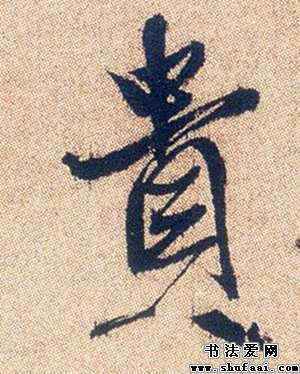 貴
书法爱网
www.shufaai.com